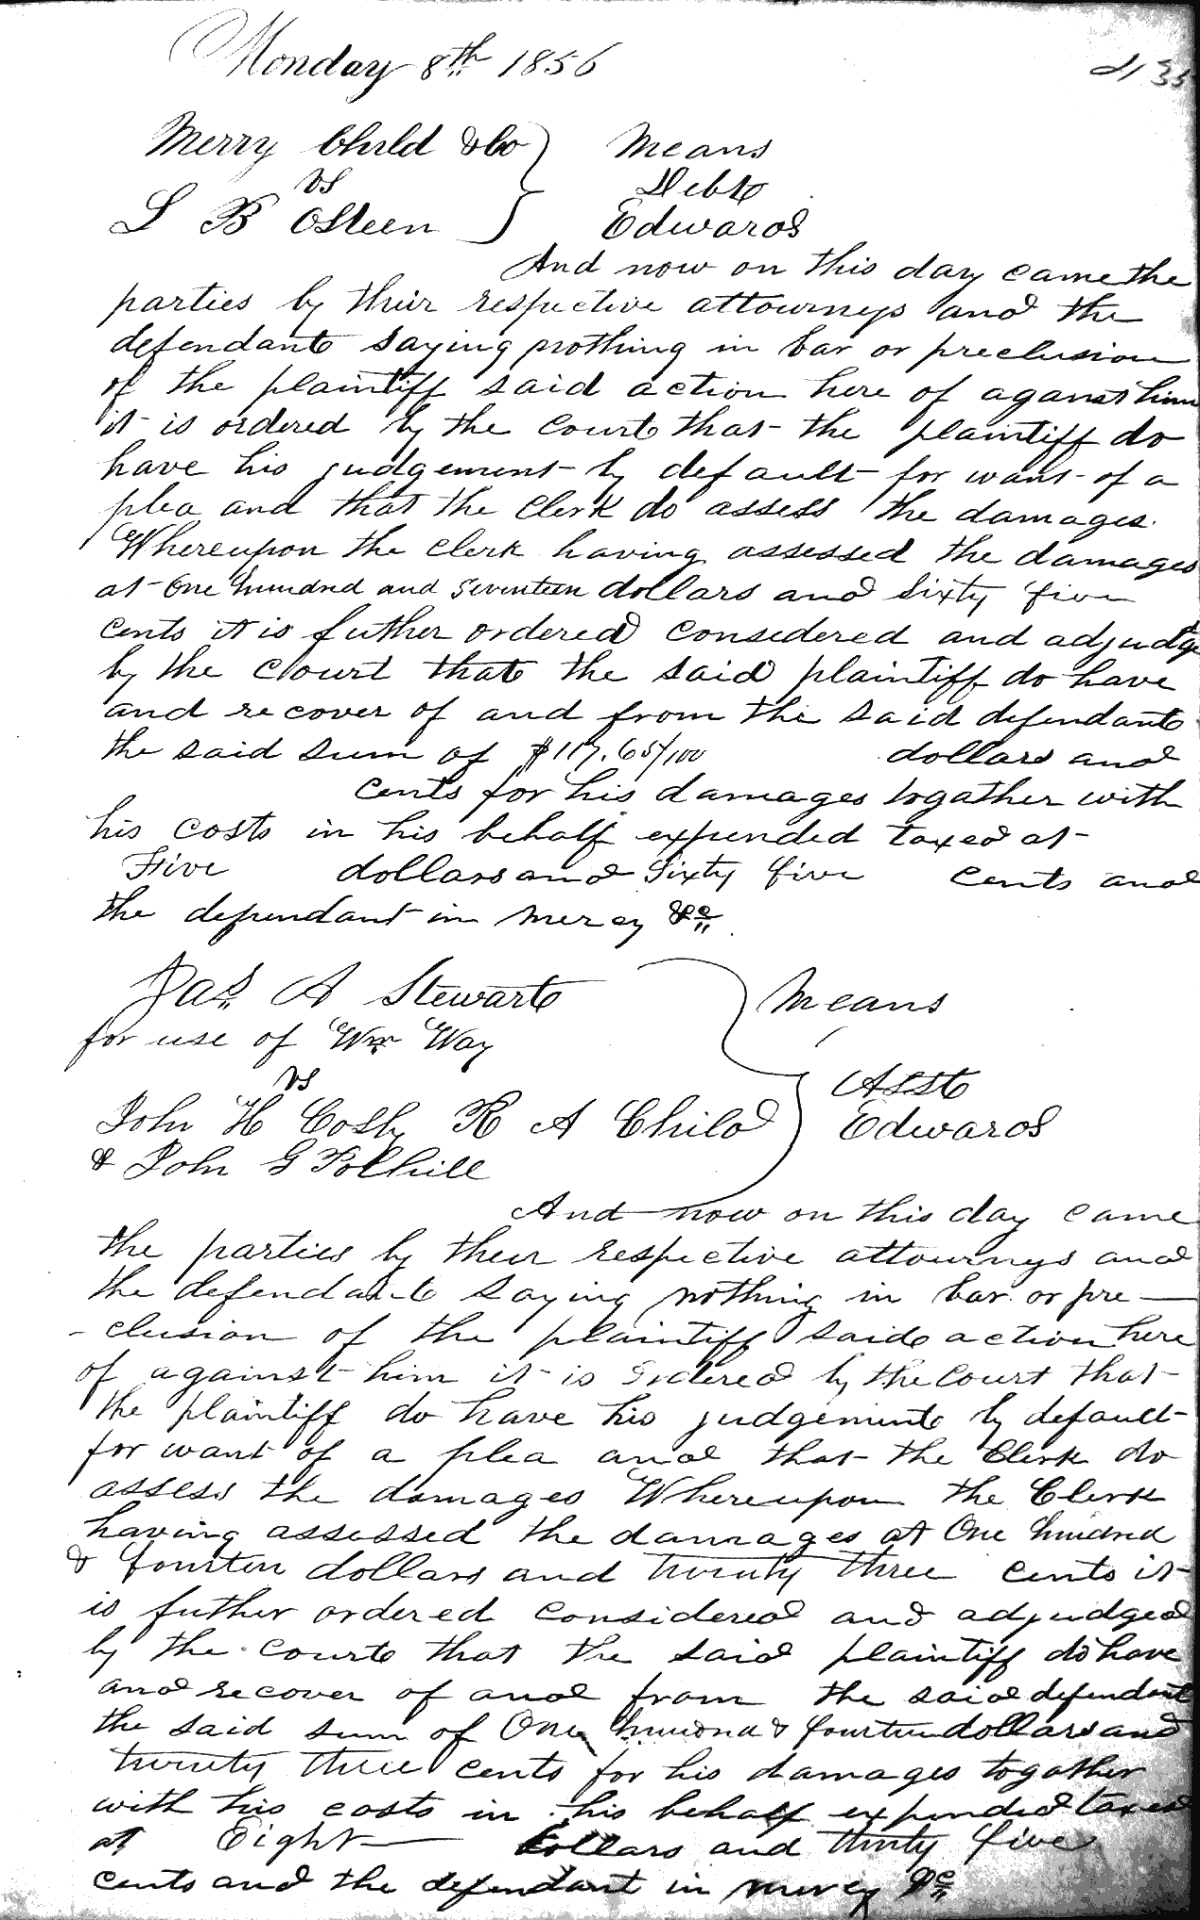 Monday 8th 1856
Merry Child &Co Means
vs Debt
L B Osteen Edwards
And now on this day came the
parties by their respective attourneys and the
defendant saying nothing in bar or preclusion
of the plaintiff said action here of against him
it is ordered by the court that the plaintiff do
have his judgement by default for want of a
plea and that the Clerk do assess the damages.
Whereupon the clerk having assessed the damages
at One hundred and Seventeen dollars and Sixty five
cents it is futher ordered considered and adjudge
by the court that the said plaintiff do have
and recover of and from the said defendant
the said sum of $117.65/100 dollars and
cents for his damages togather with
his costs in his behalf expended taxed at
Five dollars and Sixty five cents and
the defendant in mercy &c
Jas A Stewart Means
for use of Wm Way
vs Asst
John H Cosby R A Child Edwards
& John G Polhill
And now on this day came
the parties by their respective attourneys and
the defendant saying nothing in bar or pre-
-clusion of the plaintiff said action here
of against him it is ordered by the court that
the plaintiff do have his judgement by default
for want of a plea and that the Clerk do
assess the damages Whereupon the Clerk
having assessed the damages at One hundred
& fourten dollars and twenty three cents it
is futher ordered considered and adjudged
by the court that the said plaintiff do have
and recover of and from the said defendant
the said sum of One hundred & fourteen dollars and
twenty three cents for his damages togather
with his costs in his behalf expended taxed
at Eight dollars and thirty five
cents and the defendant in mercy &c